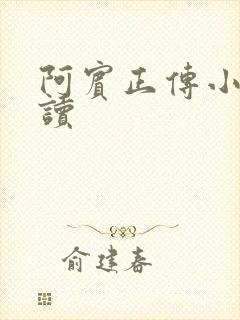 阿賓正傳小
讀
俞建春